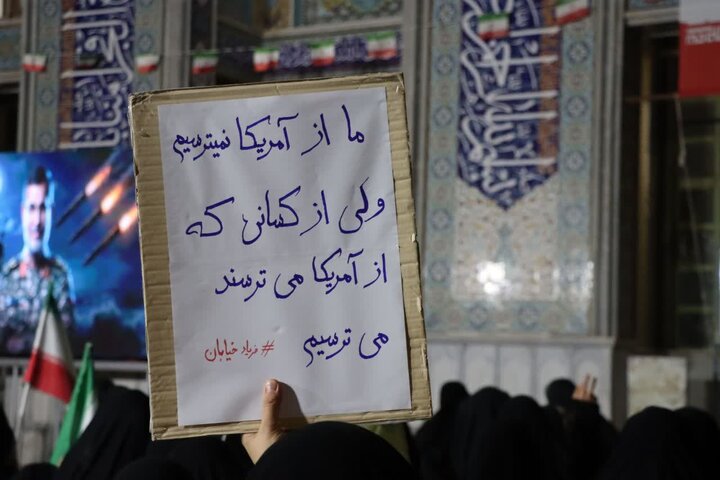 ما از آمریکا نمیترسیم
ولی از کسانی که
از آمریکا می ترسند
می ترسیم
#فریاد خیابان